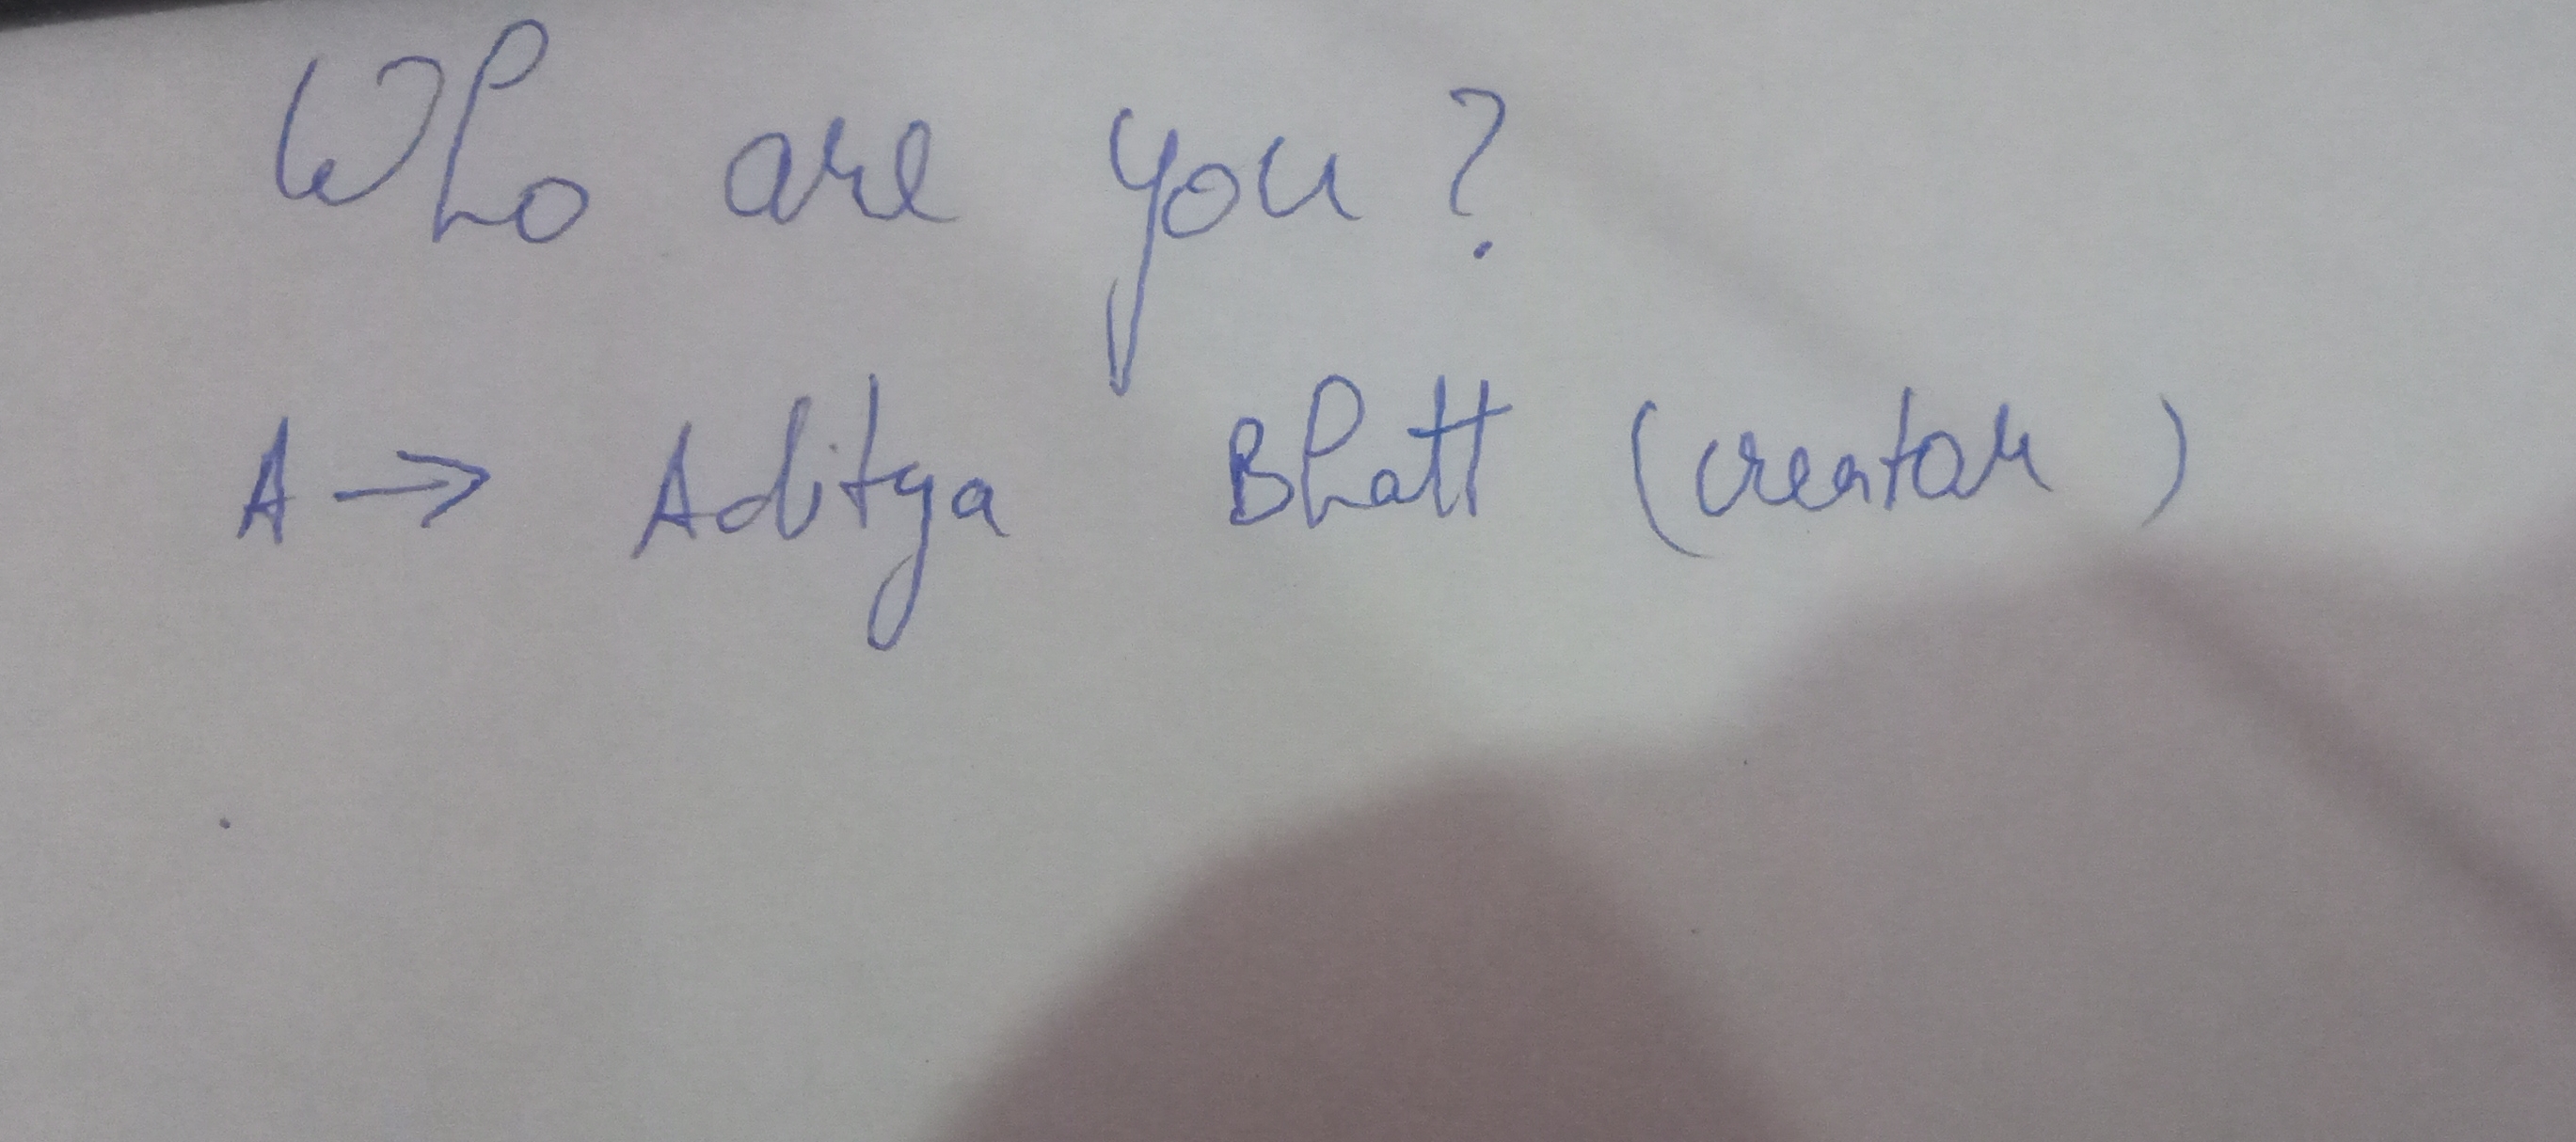 Who are you?
A → Aditya Bhatt (creator)